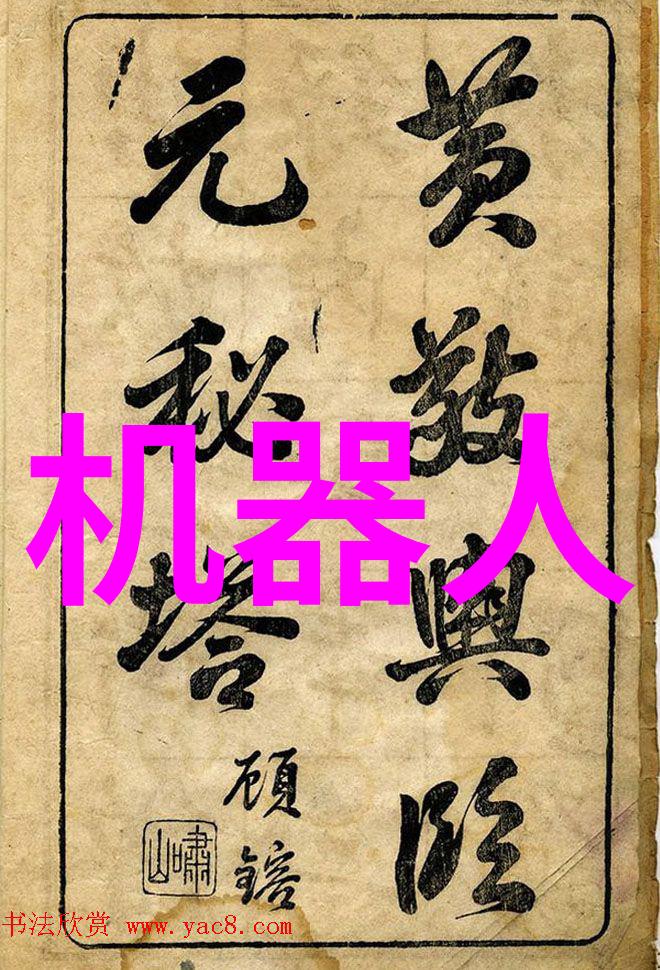 黄敬輿临
元秘塔
顾鎔
嘯山
机器人
书法欣赏 www.yac8.com